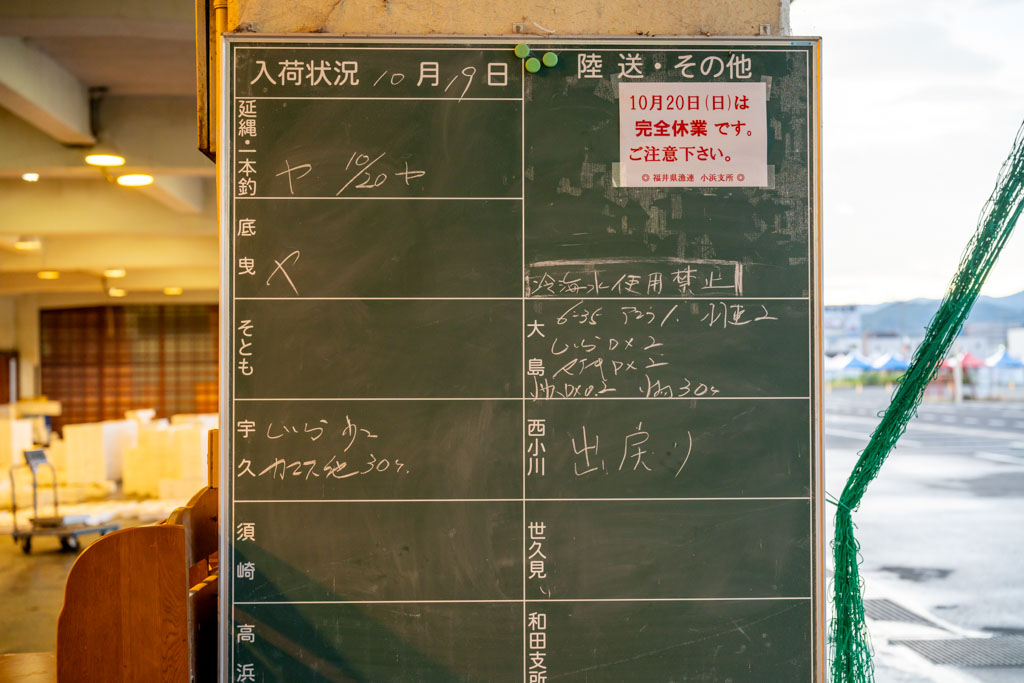 入荷状況 10月19日
延縄・一本釣
ヤ 10/20 ヤ
底曳
ヤ
そとも
宇久
しいら 少々
カマス他 30ケ.
須崎
高浜
陸送・その他
10月20日(日)は
完全休業です。
ご注意下さい。
◎ 福井県漁連 小浜支所 ◎
冷海水使用禁止
大島
6-35
しいら DX 2
DX 2
DX 0.2 30ケ
西小川
出戻り
世久見
和田支所